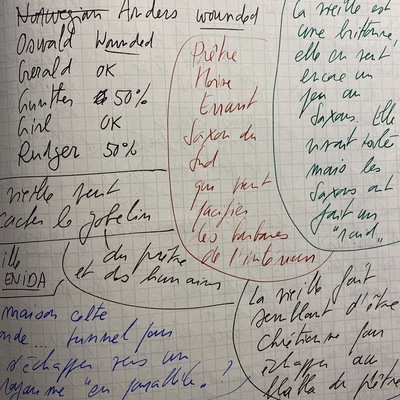 Norwegian Anders wounded
Oswald Wounded
Gerald OK
Gunther 50%
Girl OK
Rudger 50%
Prêtre
Moine
Errant
Saxon du
Sud
qui veut
pacifier
les barbares
de l'intérieur
La vieille est
une brittonne,
elle en veut
encore un
peu au
Saxons. Elle
vivait
mais les
Saxons ont
fait un
"raid"
vieille veut
cacher le gobelin
du prêtre
et des humains
ENIDA
maison celte
tunnel pour
s'échapper vers un
royaume "en parallèle" ?
La vieille fait
semblant d'être
Chrétienne pour
échapper au
blabla du prêtre